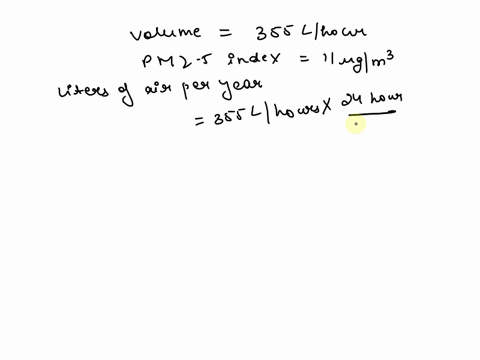 volume = 355 L/hour
PM2.5 index = 11 ug/m³
liters of air per year
= 355 L/hours X 24 hour